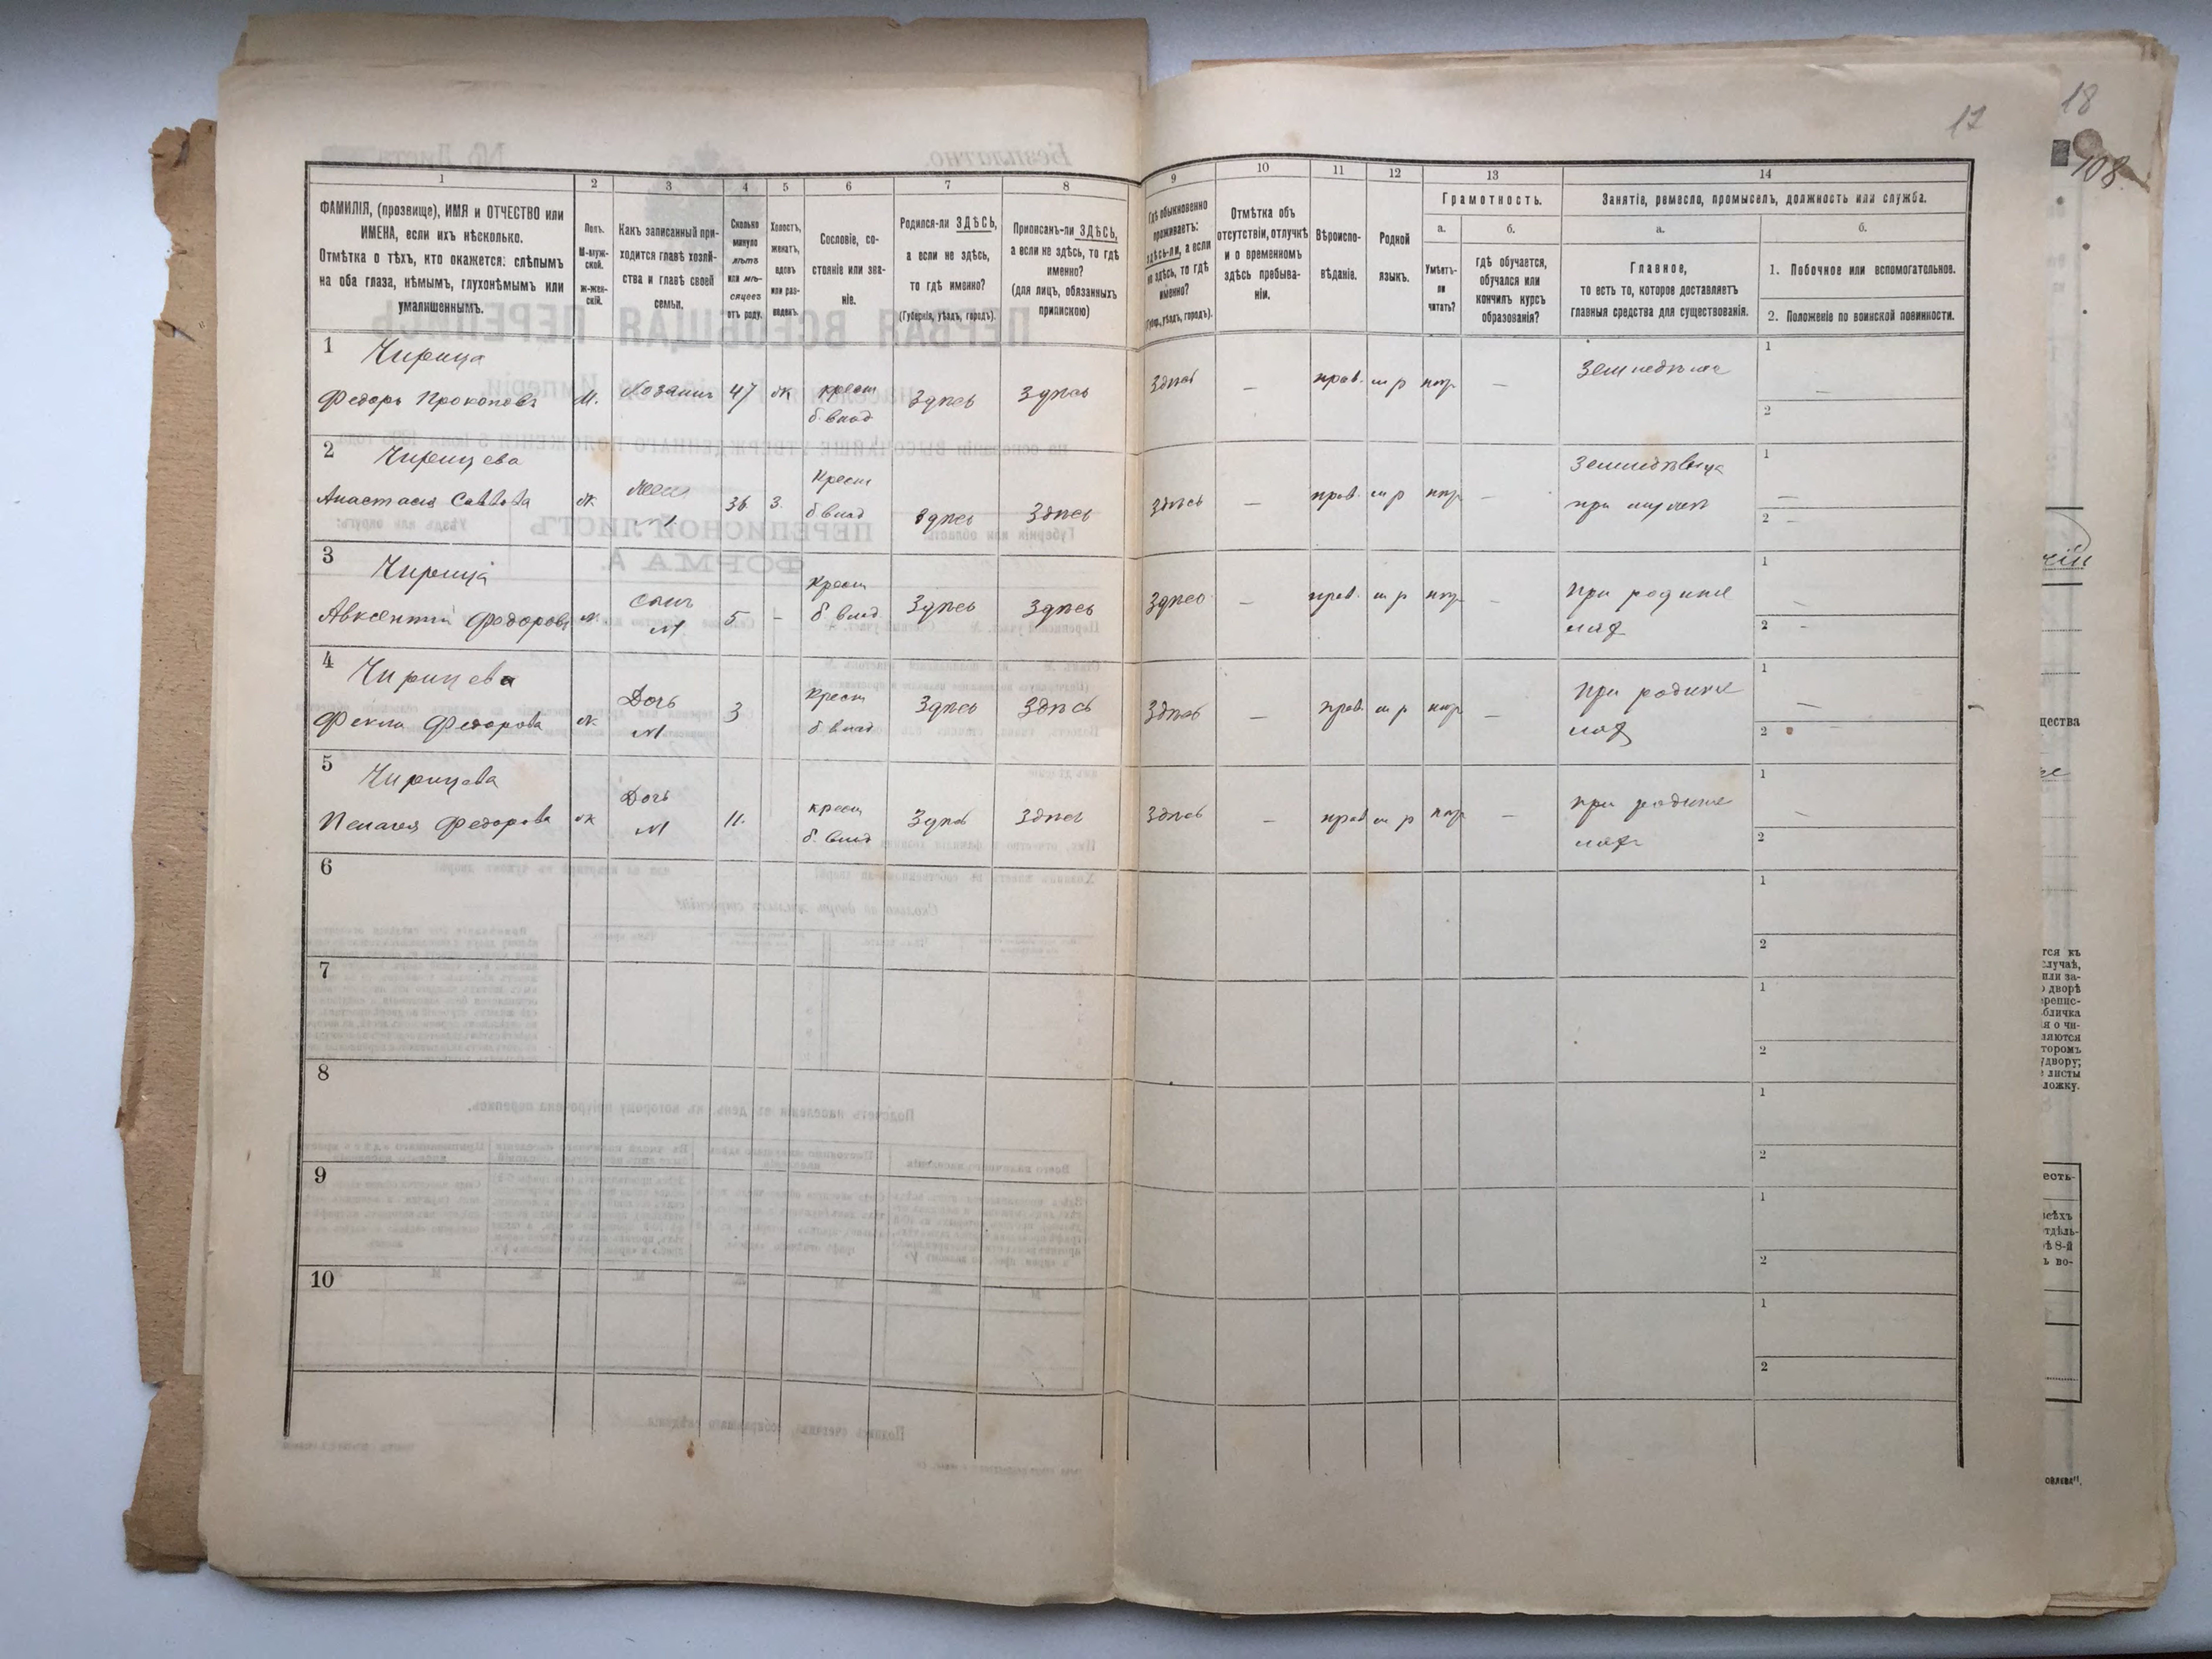 17
18
108
1
2
3
4
5
6
7
8
9
10
11
12
13
14
ФАМИЛІЯ, (прозвище), ИМЯ и ОТЧЕСТВО или
ИМЕНА, если ихъ нѣсколько.
Отмѣтка о тѣхъ, кто окажется: слѣпымъ
на оба глаза, нѣмымъ, глухонѣмымъ или
умалишеннымъ.
Полъ.
М-муж-
ской.
ж-жен-
скій.
Какъ записанный при-
ходится главѣ хозяй-
ства и главѣ своей
семьи.
Сколько
минуло
лѣтъ
или мѣ-
сяцевъ
отъ роду.
Холостъ,
женатъ,
вдовъ
или раз-
веденъ.
Сословіе, со-
стояніе или зва-
ніе.
Родился-ли ЗДѢСЬ,
а если не здѣсь,
то гдѣ именно?
(Губернія, уѣздъ, городъ).
Приписанъ-ли ЗДѢСЬ,
а если не здѣсь, то гдѣ
именно?
(для лицъ, обязанныхъ
припискою)
Гдѣ обыкновенно
проживаетъ:
здѣсь-ли, а если
не здѣсь, то гдѣ
именно?
(Губ., уѣздъ, городъ).
Отмѣтка объ
отсутствіи, отлучкѣ
и о временномъ
здѣсь пребыва-
ніи.
Вѣроиспо-
вѣданіе.
Родной
языкъ.
Грамотность.
а.
Умѣетъ-
ли
читать?
б.
гдѣ обучается,
обучался или
кончилъ курсъ
образованія?
Занятіе, ремесло, промыселъ, должность или служба.
а.
Главное,
то есть то, которое доставляетъ
главныя средства для существованія.
б.
1. Побочное или вспомогательное.
2. Положеніе по воинской повинности.
1 Чирица
Федоръ Прокоповъ М. Хозяинъ 47 ж крест
б. влад Здѣсь Здѣсь Здѣсь — прав. м р нгр — Земледѣлие 1 —
2
2 Чирицева
Анастасия Саввова ж жена
М 36 з. крест
б влад Здѣсь Здѣсь Здѣсь — прав. м р нгр — 1 —
при мужѣ 2 —
3 Чирица
Авксентий Федоровъ м сынъ
М 5 - крест
б. влад Здѣсь Здѣсь Здѣсь — прав. м р нгр — при родителѣ 1 —
2 —
4 Чирицева
Фекла Федорова ж Дочь
М 3 крест
б влад Здѣсь Здѣсь Здѣсь — прав м р нгр — при родителѣ 1 —
2 —
5 Чирицева
Пелагея Федорова ж Дочь
М 11. крест
б. влад Здѣсь Здѣсь Здѣсь — прав м р нгр — при родителѣ 1 —
2
6 1
2
7 1
2
8 1
2
9 1
2
10 1
2
щества
тся къ
случаѣ,
или за-
дворѣ
репис-
бличка
я о чи-
вляются
торомъ
двору;
листы
ложку.
есть-
всѣхъ
тдѣль-
ѣ 8-й
ь во-